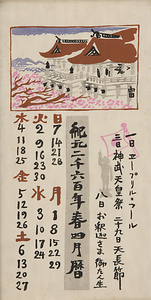 一日 エープリル・フール
三日 神武天皇祭 二十九日 天長節
八日 お釈迦さま
紀元二千六百年春四月暦
日 7 14 21 28
月 1 8 15 22 29
火 2 9 16 23 30
水 3 10 17 24
木 4 11 18 25
金 5 12 19 26
土 6 13 20 27